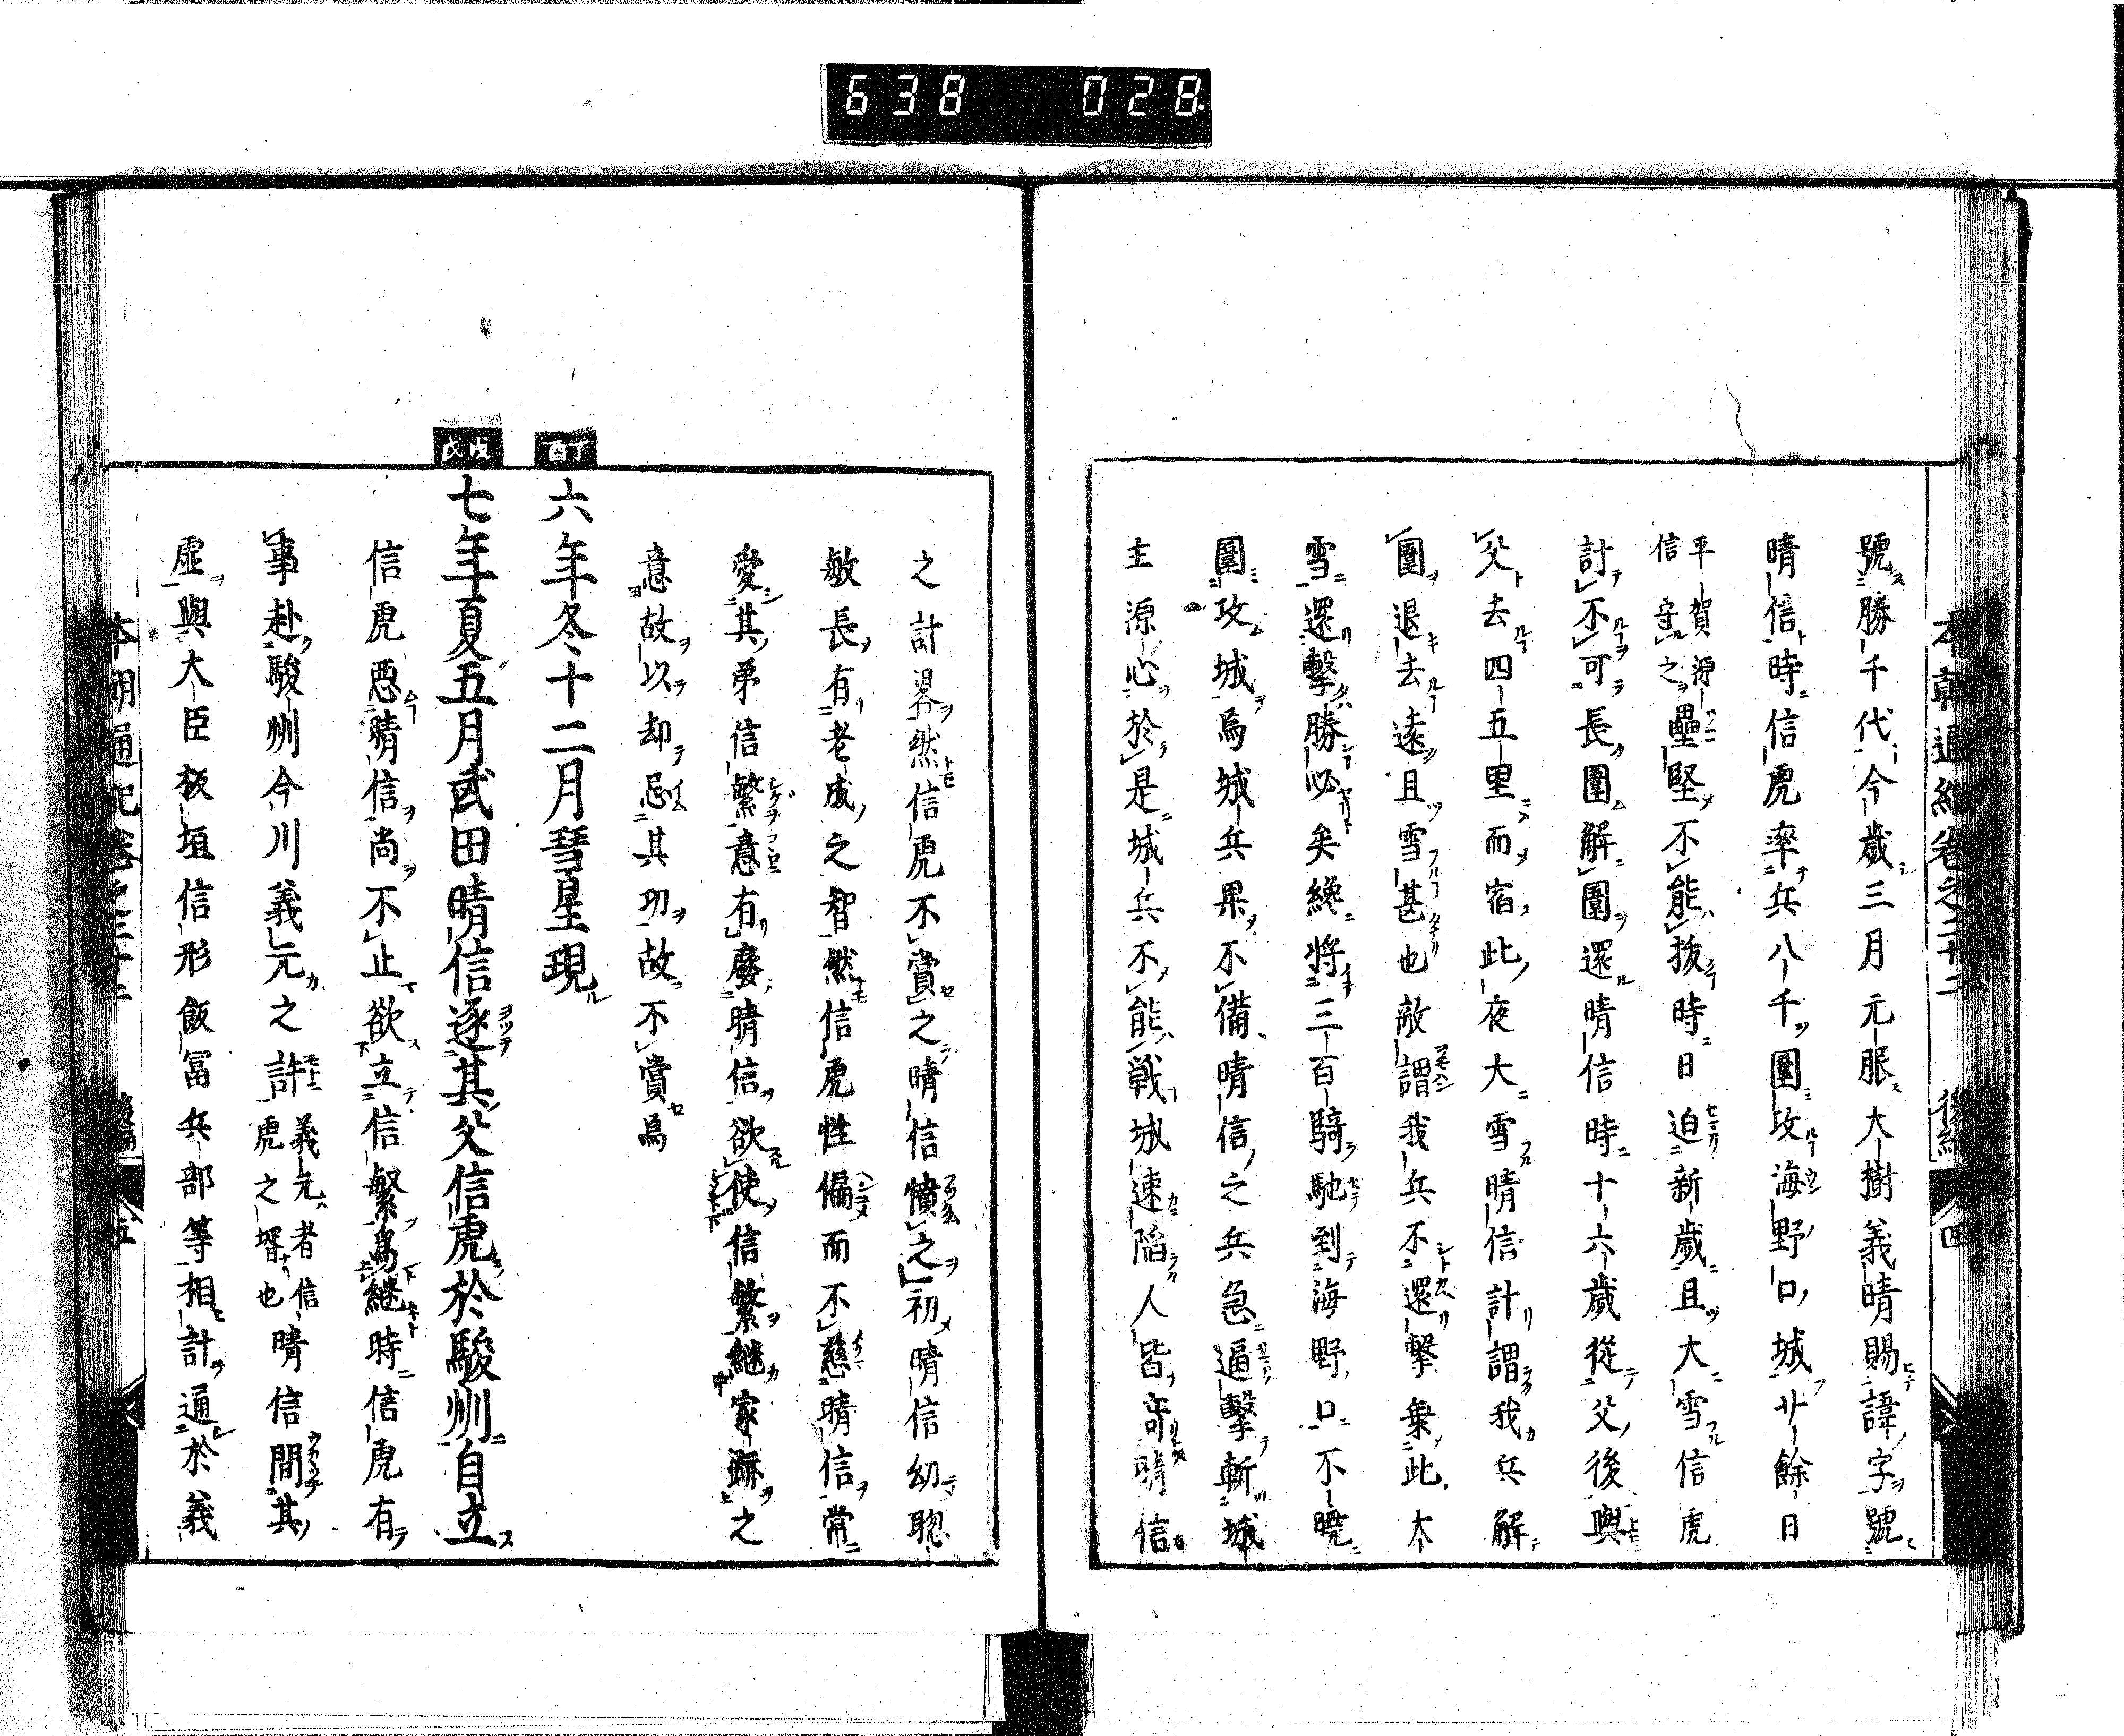 638 028
本朝通紀卷之二十二 後編 四
號勝千代今歲三月元服大樹義晴賜諱字號
晴信時信虎率兵八千圍攻海野口城廿餘日
平賀源信守之壘堅不能拔時日迫新歲且大雪信虎
計不可長圍解圍還晴信時十六歲從父後與
父去四五里而宿此夜大雪晴信計謂我兵解
圍退去遠且雪甚也敵謂我兵不還擊乗此大
雪還擊勝必矣纔將三百騎馳到海野口不曉
圍攻城焉城兵果不備晴信之兵急逼擊斬城
主源心於是城兵不能戰城速陷人皆奇晴信
之計畧然信虎不賞之晴信憤之初晴信幼聡
敏長有老成之智然信虎性偏而不慈晴信常
愛其弟信繁意有廢晴信欲使信繁継家嗣之
意故以却忌其功故不賞焉
丁酉
六年冬十二月彗星現
戊戌
七年夏五月武田晴信逐其父信虎於駿州自立
信虎惡晴信尚不止欲立信繁爲継時信虎有
事赴駿州今川義元之許義元者信虎之壻也晴信間其
虛與大臣板垣信形飯冨兵部等相計通於義
本朝通紀卷之二十二 後編 五